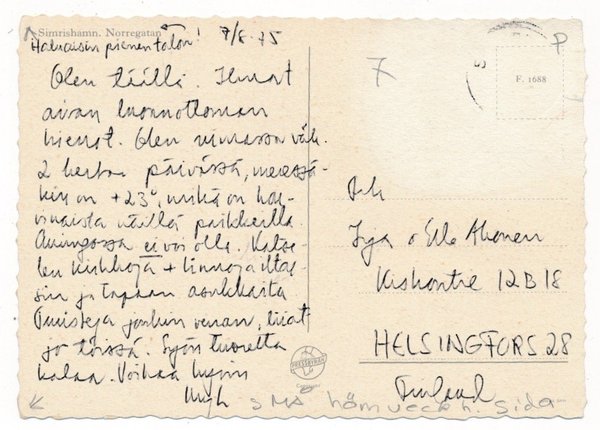 Simrishamn. Norregatan
Haluaisin pienen talon! 7/8-75
Olen täällä. Ilmat
aivan luonnottoman
hienot. Olen uimassa väh.
2 kertaa päivässä, meressä-
kin on +23°, mikä on har-
vinaista näillä paikkeilla.
Auringossa ei voi olla. Katse-
len kirkkoja + linnoja
ja tapaan asukkaita
Puisteja jonkin verran,
jo töissä. Syön tuoretta
kalaa. Voikaa hyvin
7
P
F. 1688
Irja o Erlo Ahonen
Kiskontie 12 B 18
HELSINGFORS 28
Finland
PRESSBYRÅN
SMÅ hörnveck h. sida